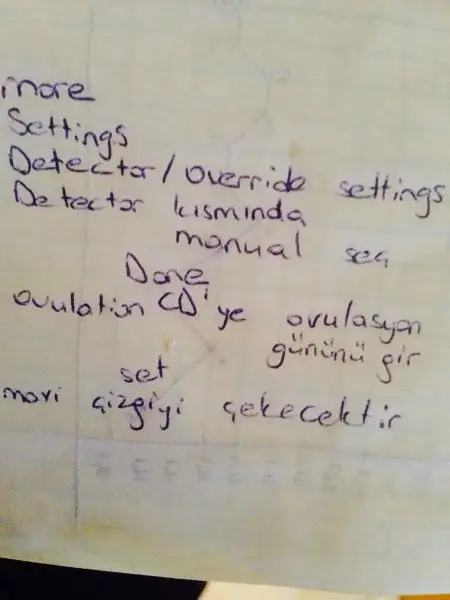 more
Settings
Detector/override settings
Detector kısmında
manual seç
Done
ovulation CD'ye ovulasyon
gününü gir
set
mavi çizgiyi çekecektir